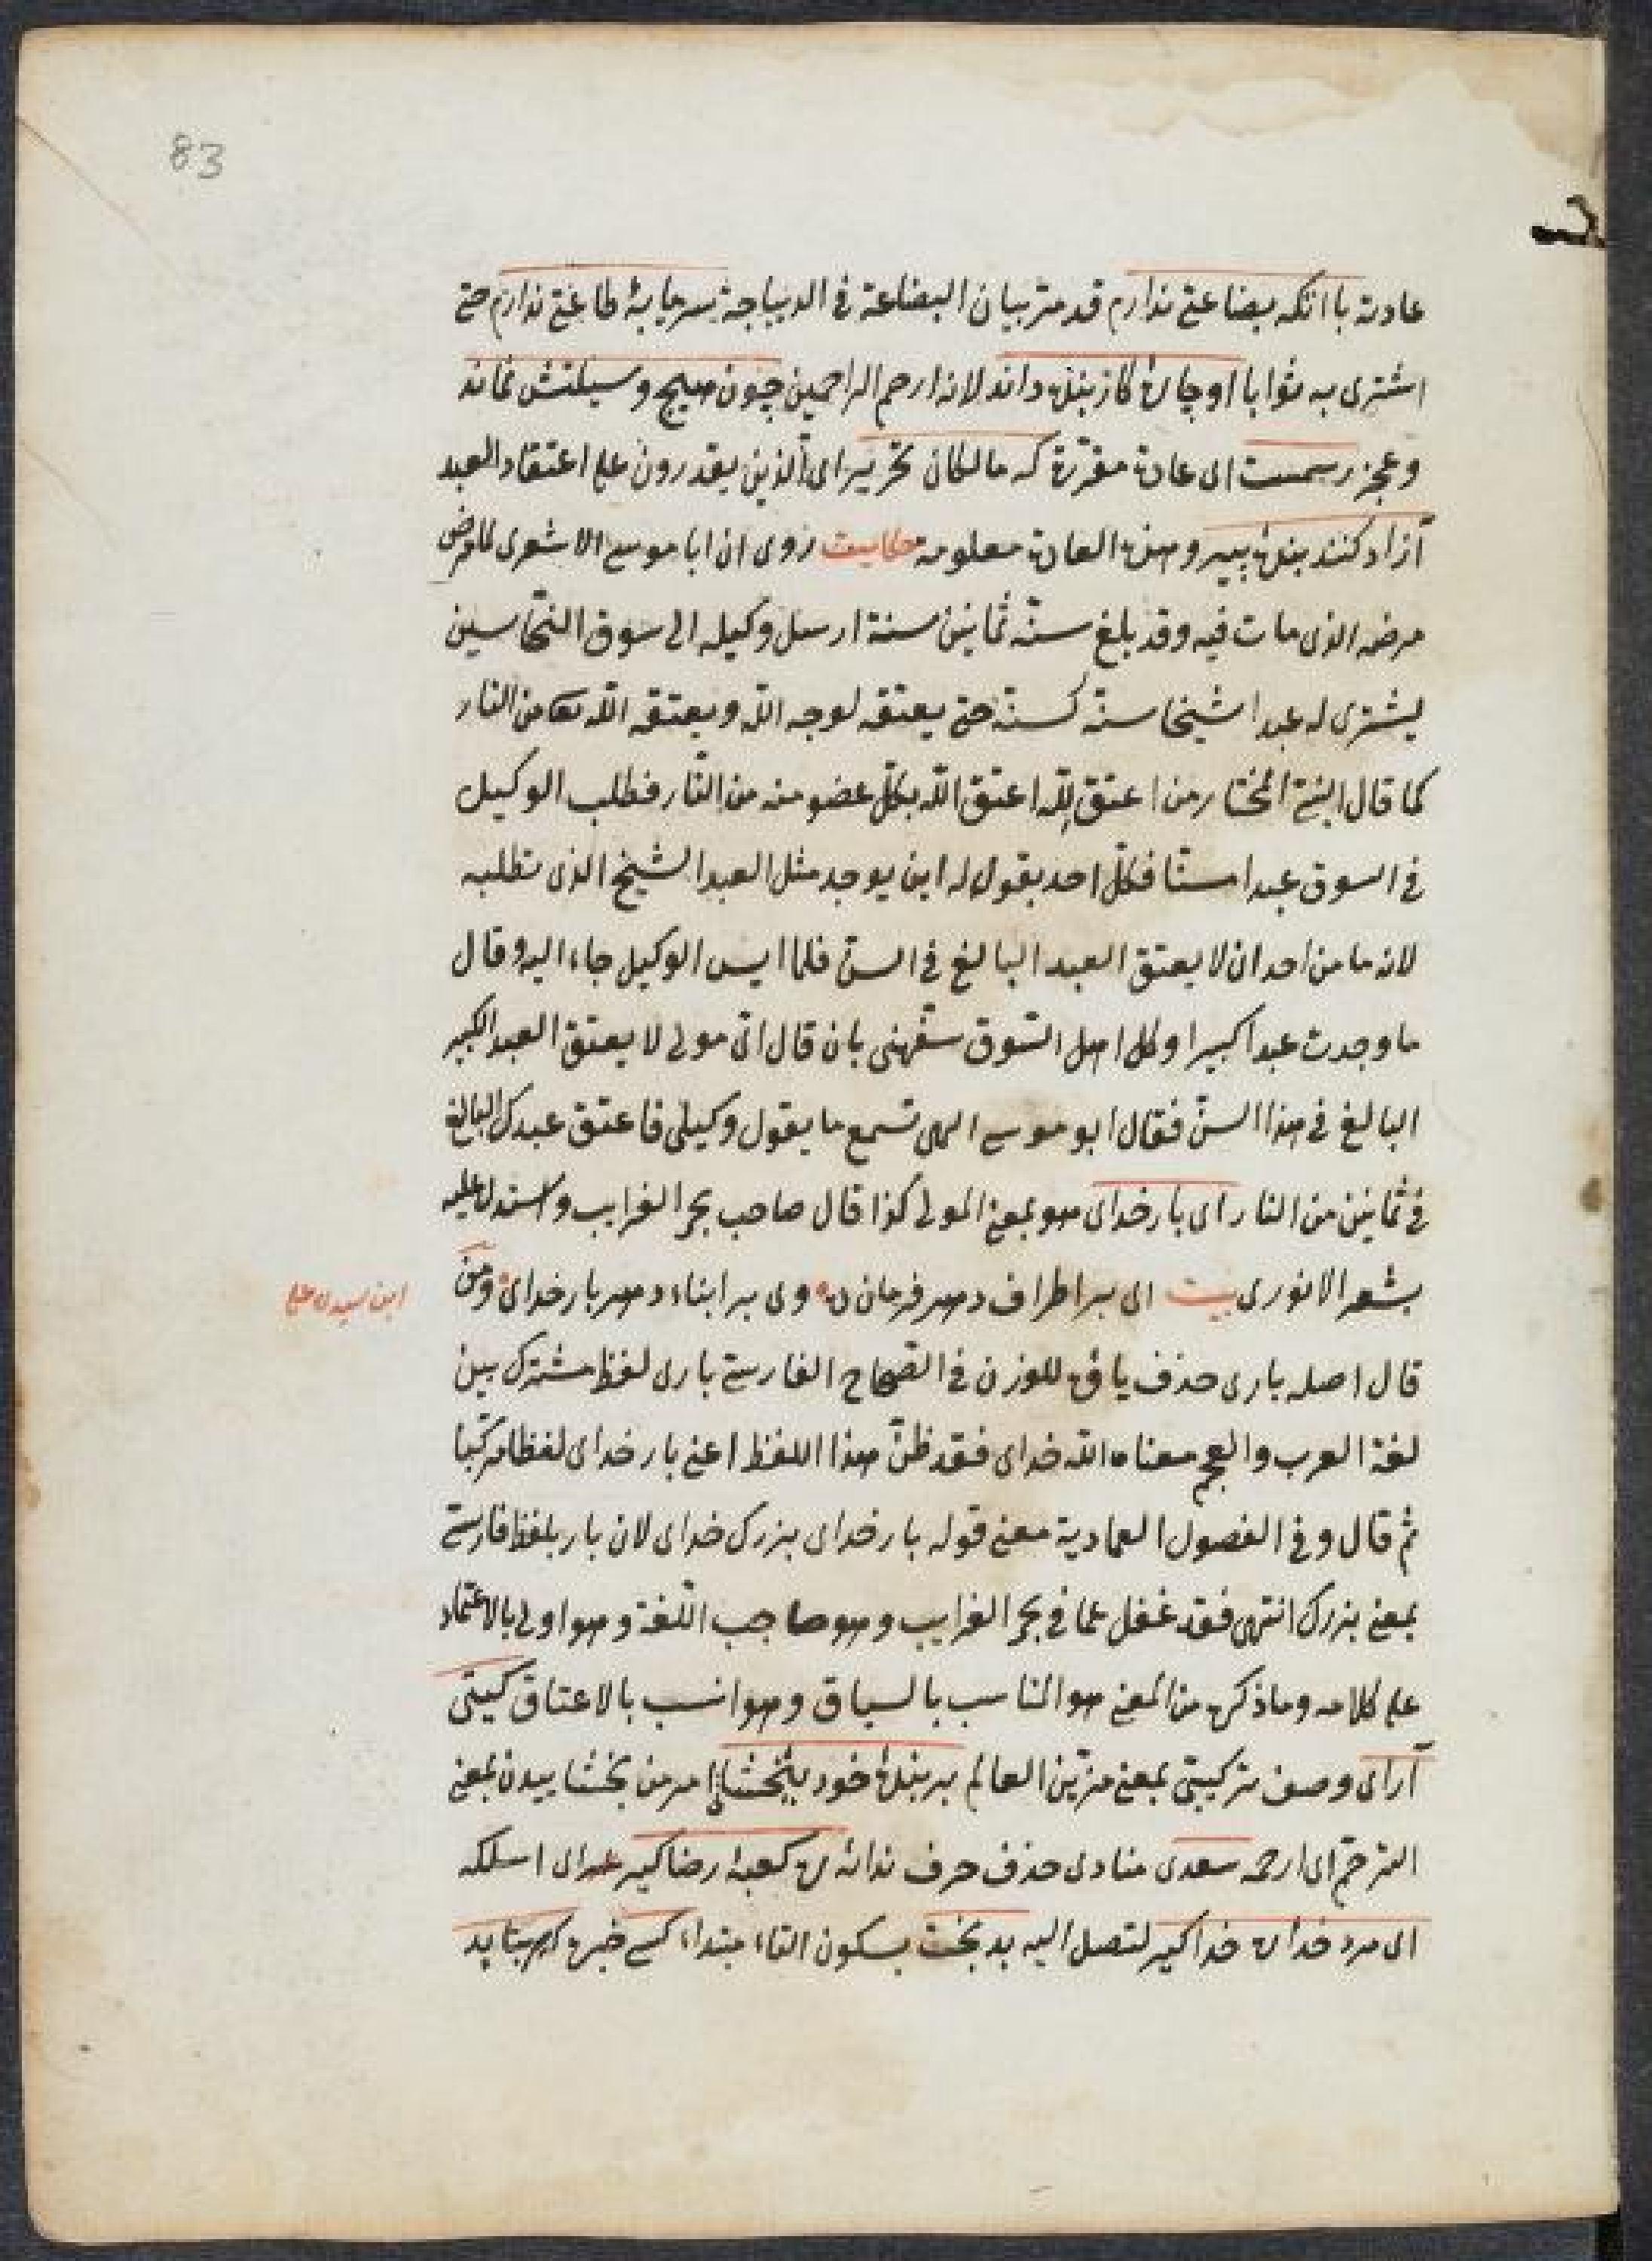 83
عادت با انكه بضاعتى ندارم قد مر بيان البضاعة فى الديباجة سرماية طاعتى ندارم حتى
اشترى به ثوابا او چارۀ كار بنده داند لانه ارحم الراحمين چون هيچ وسيلتش نماند
وعجز رسمست اى عادة مقررة كه مالكان تحرير اى الذين يقدرون على اعتقاد العبد
آزاد كنند بندۀ پير وهذه العادة معلومة حكايت روى ان ابا موسى الاشعرى لما مرض
مرضه الذى مات فيه وقد بلغ سنّه ثمانين سنة ارسل وكيله الى سوق النخاسين
ليشترى له عبدا شيخا سنّه كسنه حتى يعتقه لوجه الله ويعتقه الله تعا من النار
كما قال النبى المختار من اعتق لله اعتق الله بكلّ عضو منه من النّار فطلب الوكيل
فى السوق عبدا مسنّا فكلّ احد يقول له اين يوجد مثل العبد الشيخ الذى تطلبه
لانه ما من احد ان لا يعتق العبد البالغ فى السنّ فلما ايس الوكيل جاء اليه وقال
ما وجدت عبدا كبيرا وكل اهل السّوق سفّهنى بان قال اىّ مولى لا يعتق العبد الكبير
البالغ فى هذا السنّ فقال ابو موسى الهى تسمع ما يقول وكيلى فاعتق عبدك البالغ
فى ثمانين من النار اى بار خداى هو بمعنى المولى كذا قال صاحب بحر الغرايب واستدل عليه
بشعر الانورى بيت اى بر اطراف دهر فرمان ده وى بر ابناء دهر بار خداى ومن
ابن سيدى على
قال اصله بارى حذف ياؤه للوزن فى الصحاح الفارسى بارى لفظ مشترك بين
لغة العرب والعجم معناه الله خداى فقد ظنّ هذا اللفظ اعنى بار خداى لفظا مركّبا
ثم قال وفى الفصول العمادية معنى قوله بار خداى بزرك خداى لان بار بلفظ فارسى
بمعنى بزرك انتهى فقد غفل عما فى بحر الغرايب وهو صاحب اللّغة وهو اولى بالاعتماد
على كلامه وما ذكره من المعنى هو المناسب بالسياق وهو انسب بالاعتاق كيتى
آراى وصف تركيبى بمعنى مزيّن العالم بر بندۀ خود ببخشاى امر من بخشاييدن بمعنى
الترحّم اى ارحمه سعدى منادى حذف حرف ندائه ره كعبۀ رضا كير اى اسلكه
اى مرد خدا ره خدا كير لتصل اليه بدبخت بسكون التاء مبتداء كسى خبره كه بتابد